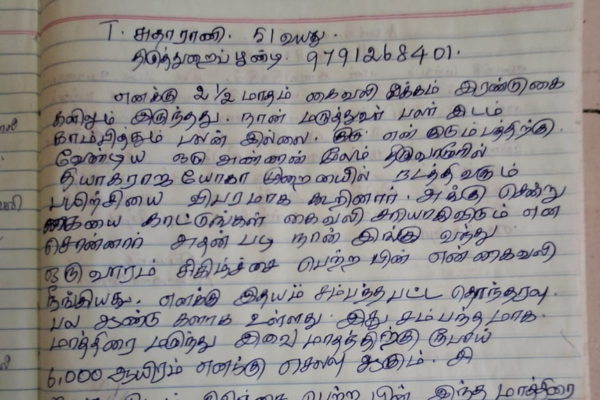 T. சுதாராணி. 51 வயது.
திருத்துறைப்பூண்டி. 9791268401.
எனக்கு 2 1/2 மாதம் கைவலி இரண்டு கை
களிலும் இருந்தது. நான் மருத்துவர் பலர் இடம்
காம்பித்தும் பலன் இல்லை. என் குடும்பத்திற்கு
வேண்டிய ஒரு அண்ணன் மூலம் திருவாரூரில்
தியாகராஜ யோகா முறையில் நடத்தி வரும்
பயிற்சியை விபரமாக கூறினார். அங்கு சென்று
கையை காட்டுங்கள் கைவலி சரியாகிவிடும் என
சொன்னார் அதன் படி நான் இங்கு வந்து
ஒரு வாரம் சிகிச்சை பெற்ற பின் என் கைவலி
நீங்கியது. எனக்கு இதயம் சம்பந்தபட்ட தொந்தரவு
பல ஆண்டு களாக உள்ளது. இது சம்பந்தமாக
மாத்திரை மருந்து இவை மாதத்திற்கு ரூபாய்
6,000 ஆயிரம் எனக்கு செலவு ஆகும். சி
பெற்ற பின் இந்த மாத்திரை